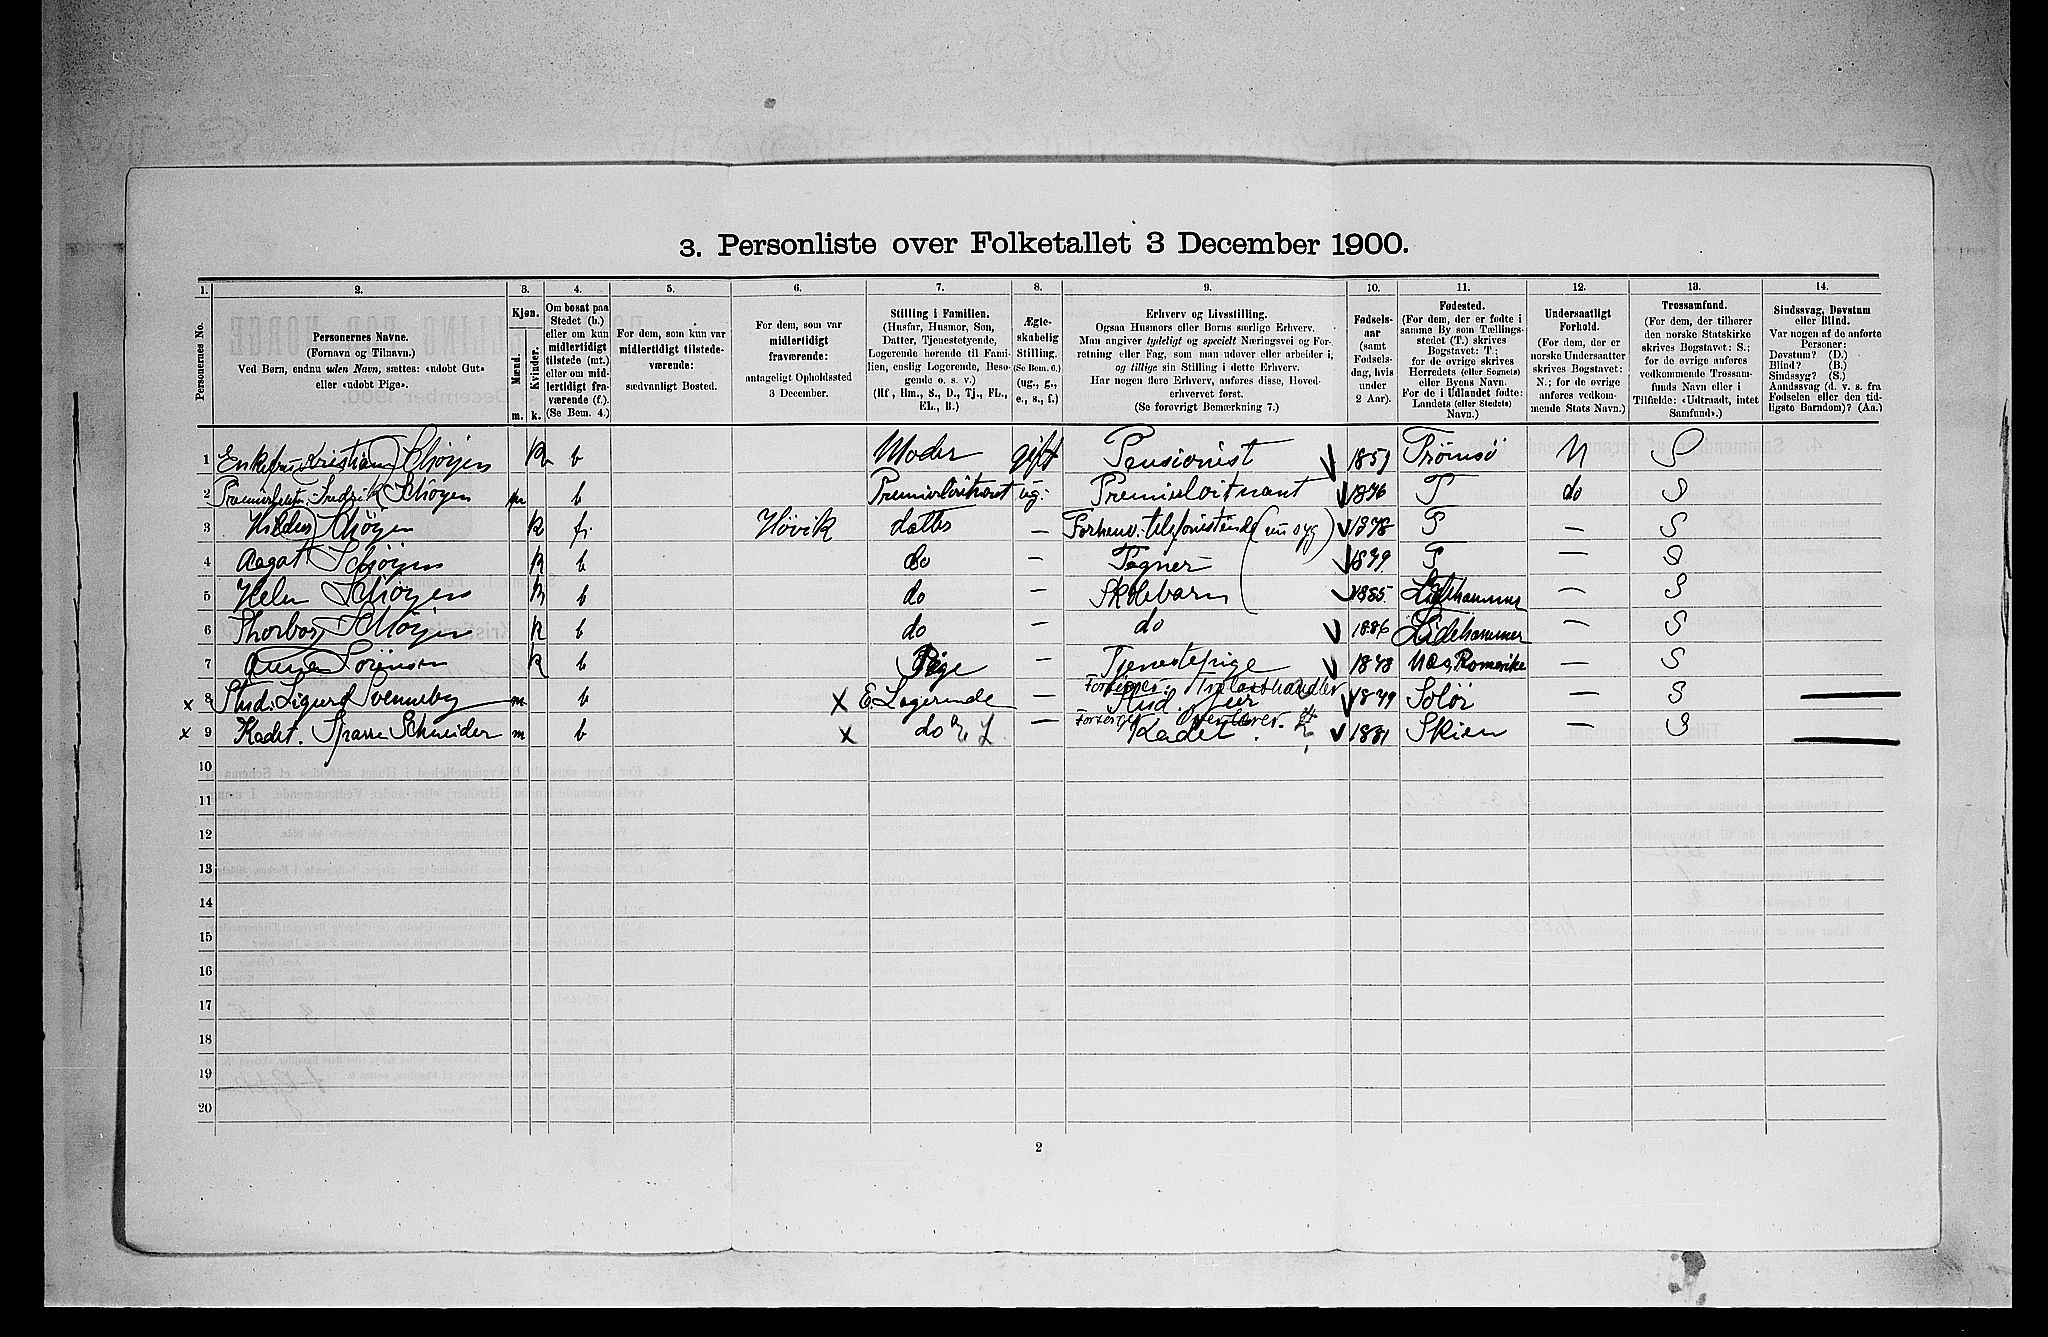 3. Personliste over Folketallet 3 December 1900.
1. 2. 3. 4. 5. 6. 7. 8. 9. 10. 11. 12. 13. 14.
Personernes No.
Personernes Navne.
(Fornavn og Tilnavn.)
Ved Børn, endnu uden Navn, sættes: «udøbt Gut»
eller «udøbt Pige».
Kjøn.
Mænd.
Kvinder.
m. k.
Om bosat paa
Stedet (b.)
eller om kun
midlertidigt
tilstede (mt.)
eller om mid-
lertidigt fra-
værende (f.).
(Se Bem. 4.)
For dem, som kun var
midlertidigt tilstede-
værende:
sædvanligt Bosted.
For dem, som var
midlertidigt
fraværende:
antageligt Opholdssted
3 December.
Stilling i Familien.
(Husfar, Husmor, Søn,
Datter, Tjenestetyende,
Logerende hørende til Fami-
lien, enslig Logerende, Besø-
gende o. s. v.)
(Hf, Hm., S., D., Tj., FL.,
EL., B.)
Ægte-
skabelig
Stilling.
(Se Bem. 6.)
(ug., g.,
e., s., f.)
Erhverv og Livsstilling.
Ogsaa Husmors eller Børns særlige Erhverv.
Man angiver tydeligt og specielt Næringsvei og For-
retning eller Fag, som man udøver eller arbeider i,
og tillige sin Stilling i dette Erhverv.
Har nogen flere Erhverv, anføres disse, Hoved-
erhvervet først.
(Se forøvrigt Bemærkning 7.)
Fødsels-
aar
(samt
Fødsels-
dag, hvis
under
2 Aar).
Fødested.
(For dem, der er fødte i
samme By som Tællings-
stedet (T.) skrives
Bogstavet: T.;
for de øvrige skrives
Herredets (eller Sognets)
eller Byens Navn.
For de i Udlandet fødte:
Landets (eller Stedets)
Navn.)
Undersaatligt
Forhold.
(For dem, der er
norske Undersaatter
skrives Bogstavet:
N.; for de øvrige
anføres vedkom-
mende Stats Navn.)
Trossamfund.
(For dem, der tilhører
den norske Statskirke
skrives Bogstavet: S.;
for de øvrige anføres
vedkommende Trossam-
funds Navn eller i
Tilfælde: «Udtraadt, intet
Samfund».)
Sindssvag, Døvstum
eller Blind.
Var nogen af de anførte
Personer:
Døvstum? (D.)
Blind? (B.)
Sindssyg? (S.)
Aandssvag (d. v. s. fra
Fødselen eller den tid-
ligste Barndom)? (Aa.)
1 Schøyen k b Moder gift Pensionist Tromsø N S
2 Fredrik Schøyen m b Premierløitnant ug. Premierløitnant 1876 T do S
3 Schøyen k f. Høvik datter — Forhenv. telefonistinde (nu syg) 1878 T — S
4 Aagot Schøyen k b do — Tegner 1879 T — S
5 Schøyen k b do — Skolebarn 1885 Lillehammer — S
6 Thorborg Schøyen k b do do 1886 Lillehammer — S
7 Sørensen k b Pige — Tjenestepige 1878 Romerike — S
x 8 Stud. Sigurd Svenneby m b x E. Logerende — Forsørger: Trælasthandler
Stud. jur 1879 Solør — S
x 9 Kadet. Sparre Schneider m b x do E L — Forsørger
Kadet. 1881 Skien — S
10
11
12
13
14
15
16
17
18
19
20
2